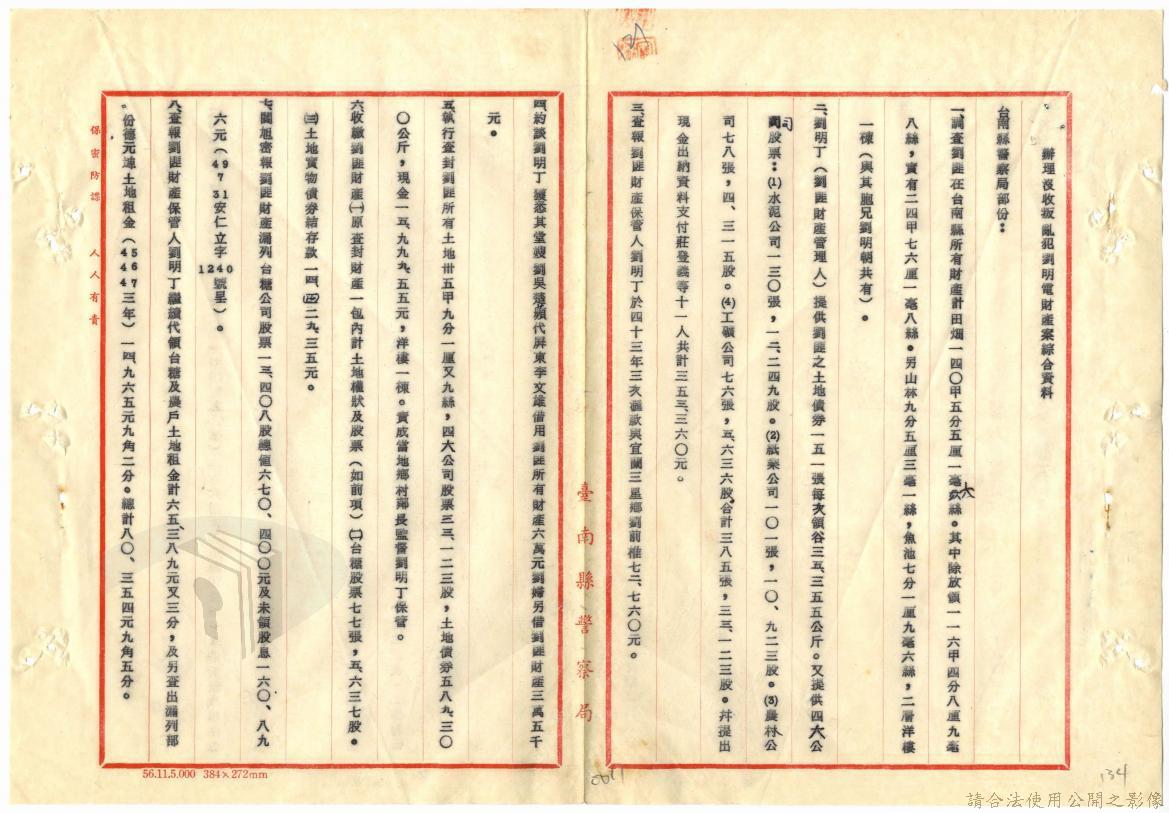 辦理沒收叛亂犯劉明電財產案綜合資料
台南縣警察局部份：
一、調查劉匪在台南縣所有財產計田畑一四〇甲五分五厘一毫六絲。其中除放領一一六甲四分八厘九毫
八絲，實有二四甲七六厘一毫八絲。另山林九分五厘三毫一絲，魚池七分一厘九毫六絲，二層洋樓
一棟（與其胞兄劉明朝共有）。
二、劉明丁（劉匪財產管理人）提供劉匪之土地債券一五一張每次領谷三五、三五五公斤。又提供四大公
司股票：⑴水泥公司一三〇張，一二、二四九股。⑵紙業公司一〇一張，一〇、九二三股。⑶農林公
司七八張，四、三一五股。⑷工礦公司七六張，五、六三六股。合計三八五張，三三、一二三股。幷提出
現金出納資料支付莊登義等十一人共計三五三、三六〇元。
三、查報劉匪財產保管人劉明丁於四十三年三次滙款與宜蘭三星鄉劉前椎七二、七六〇元。
四、約談劉明丁獲悉其堂嫂劉吳楚頻代屏東李文雄借用劉匪所有財產六萬元劉婦另借劉匪財產三萬五千
元。
五、執行查封劉匪所有土地卅五甲九分一厘又九絲，四大公司股票三三、一二三股，土地債券五八九、三〇
〇公斤，現金一五、九九九、五五元，洋樓一棟。責成當地鄉村鄰長監督劉明丁保管。
六、收繳劉匪財產㈠原查封財產一包內計土地權狀及股票（如前項）㈡台糖股票七七張，五、六三七股。
㈢土地實物債券結存款一四、四二九、三五元。
七、關旭密報劉匪財產漏列台糖公司股票一三、四〇八股總值六七〇、四〇〇元及未領股息一六〇、八九
六元（49 7 31安仁立字1240號呈）。
八、查報劉匪財產保管人劉明丁繼續代領台糖及農戶土地租金計六五、三八九元又三分，及另查出漏列部
份德元埤土地租金（45 46 47三年）一四、九六五元九角二分。總計八〇、三五四元九角五分。
臺南縣警察局
保密防諜　人人有責
56.11.5.000 384×272mm
134
請合法使用公開之影像